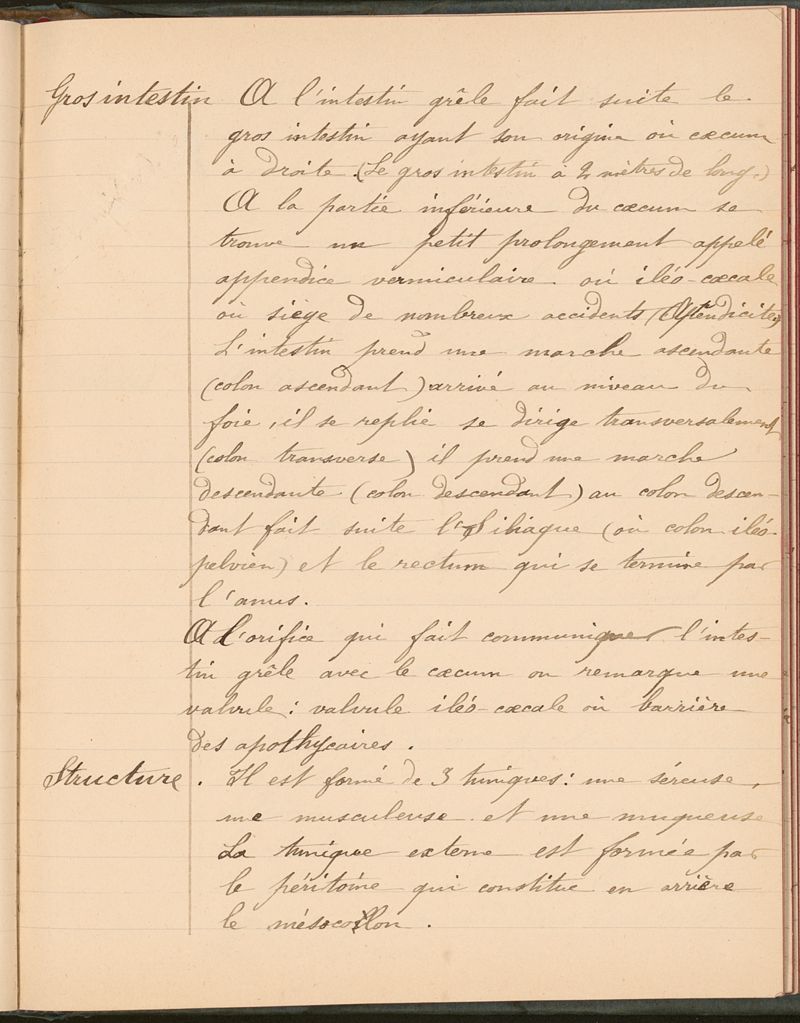 Gros intestin A l'intestin grêle fait suite le
gros intestin ayant son origine où cœcum
à droite. (Le gros intestin a 2 mètres de long.)
A la partie inférieure du cœcum se
trouve un petit prolongement appelé
appendice vermiculaire. où iléo-cœcale
où siège de nombreux accidents (Apendicite)
L'intestin prend une marche ascendante
(colon ascendant) arrivé au niveau du
foie, il se replie se dirige transversalement
(colon transverse) il prend une marche
descendante (colon descendant) au colon descen-
dant fait suite l'S iliaque (où colon iléo-
pelvien) et le rectum qui se termine par
l'anus.
A l'orifice qui fait communiquer l'intes-
tin grêle avec le cœcum on remarque une
valvule : valvule iléo-cœcale où barrière
des apothycaires.
Structure. Il est formé de 3 tuniques : une séreuse,
une musculeuse et une muqueuse
La tunique externe est formée par
le péritoine qui constitue en arrière
le mésocollon.